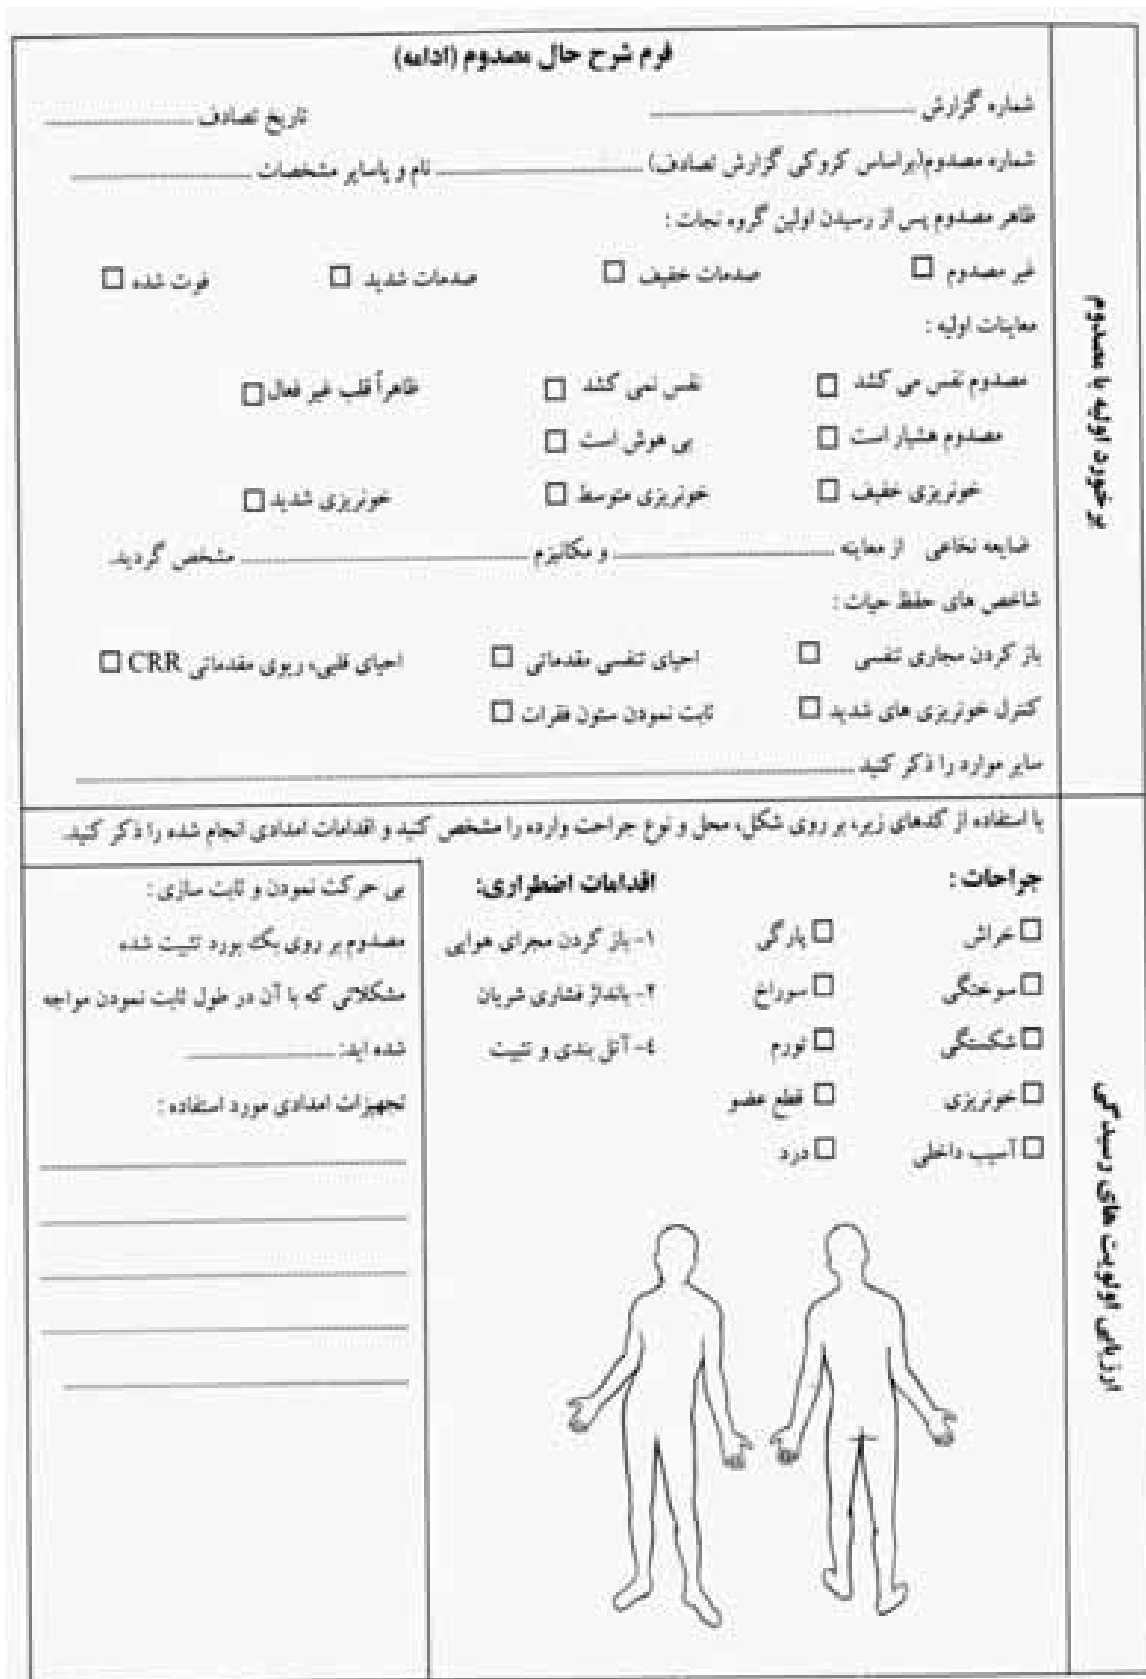 فرم شرح حال مصدوم (ادامه)
شماره گزارش ........ تاریخ تصادف ........
شماره مصدوم(براساس کروکی گزارش تصادف) ........ نام و یاسایر مشخصات ........
ظاهر مصدوم پس از رسیدن اولین گروه نجات :
غیر مصدوم □ صدمات خفیف □ صدمات شدید □ فوت شده □
معاینات اولیه :
مصدوم نفس می کشد □ نفس نمی کشد □ ظاهراً قلب غیر فعال □
مصدوم هشیار است □ بی هوش است □
خونریزی خفیف □ خونریزی متوسط □ خونریزی شدید □
ضایعه نخاعی از معاینه ........ و مکانیزم ........ مشخص گردید.
شاخص های حفظ حیات :
باز کردن مجاری تنفسی □ احیای تنفسی مقدماتی □ احیای قلبی، ریوی مقدماتی CRR □
کنترل خونریزی های شدید □ ثابت نمودن ستون فقرات □
سایر موارد را ذکر کنید ........
برخورد اولیه با مصدوم
با استفاده از کدهای زیر، بر روی شکل، محل و نوع جراحت وارده را مشخص کنید و اقدامات امدادی انجام شده را ذکر کنید.
جراحات :
□ خراش □ پارگی
□ سوختگی □ سوراخ
□ شکستگی □ تورم
□ خونریزی □ قطع عضو
□ آسیب داخلی □ درد
اقدامات اضطراری:
۱- باز کردن مجرای هوایی
۲- بانداژ فشاری شریان
٤- آتل بندی و تثبیت
بی حرکت نمودن و ثابت سازی :
مصدوم بر روی بک بورد تثبیت شده
مشکلاتی که با آن در طول ثابت نمودن مواجه
شده اید: ........
تجهیزات امدادی مورد استفاده :
ارزیابی اولویت های رسیدگی